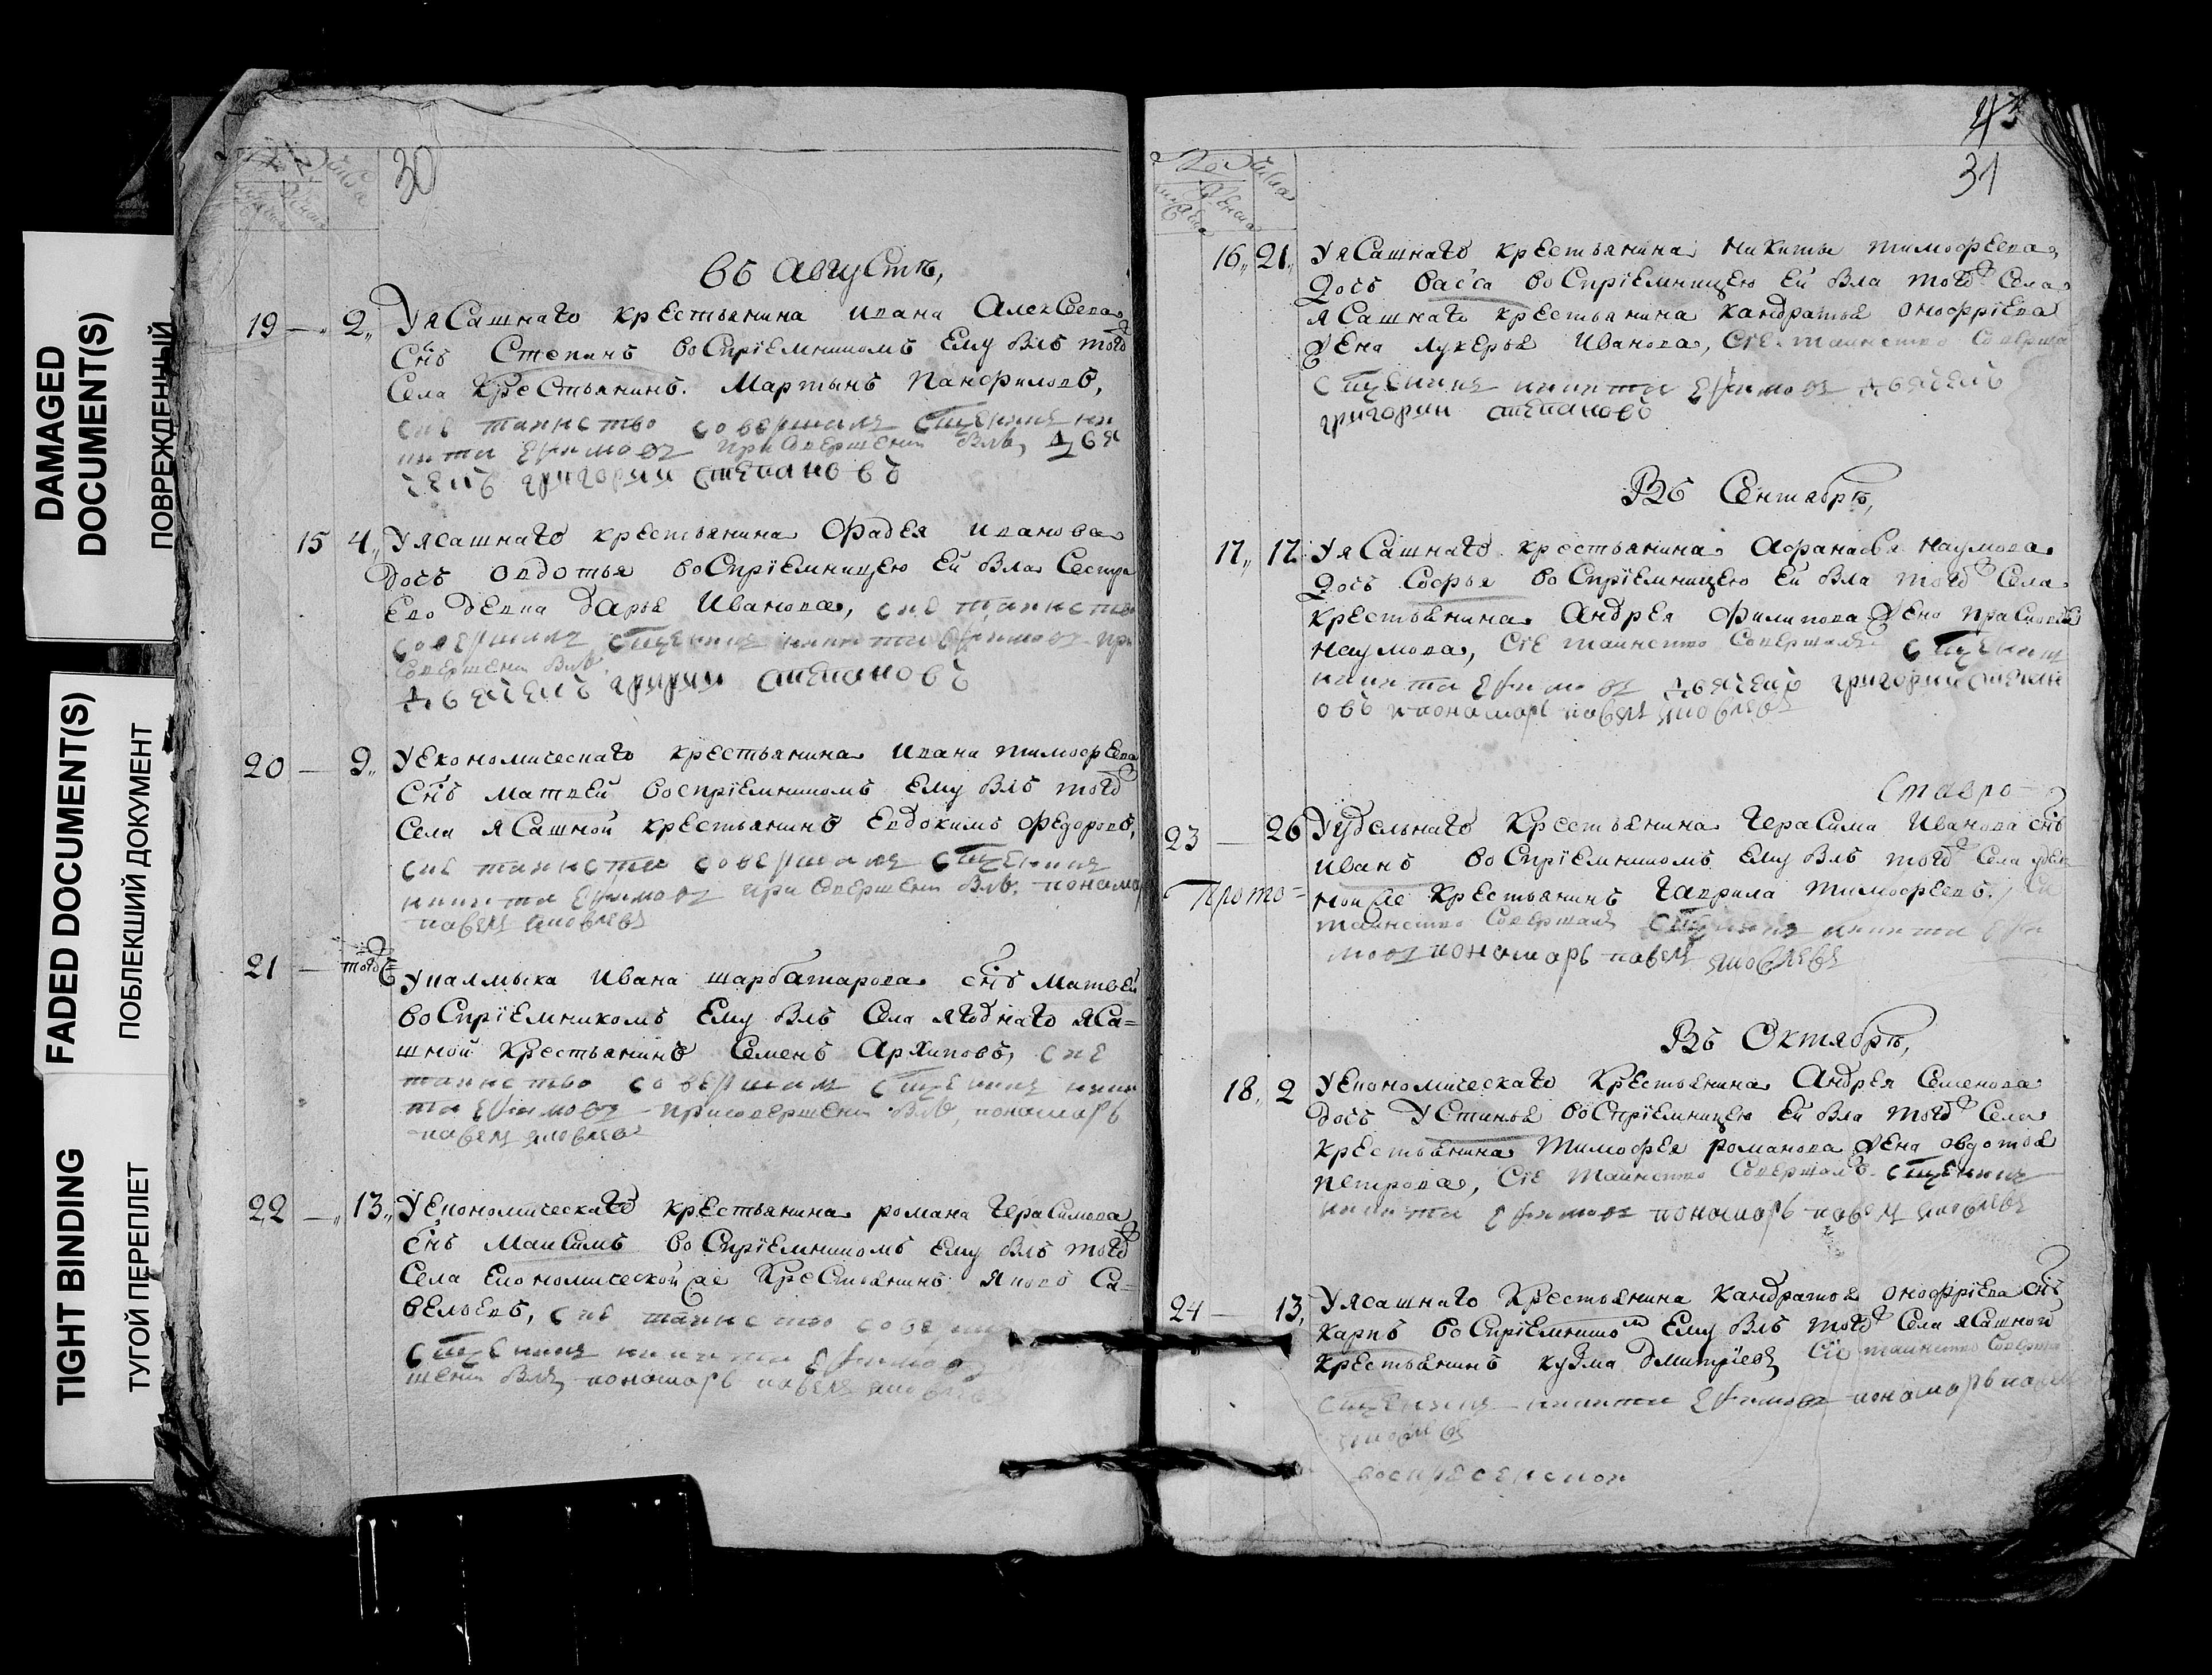 DAMAGED
DOCUMENT(S)
ПОВРЕЖДЕННЫЙ
FADED DOCUMENT(S)
ПОБЛЕКШИЙ ДОКУМЕНТ
TIGHT BINDING
ТУГОЙ ПЕРЕПЛЕТ
30
въ Августѣ,
19 — 2,, У ясашнаго крестьянина Ивана Алексеева
снъ Степанъ воспрїемникомъ ему былъ тогожъ
села крестьянинъ Мартынъ Панфиловъ,
сие таинство совершалъ священникъ ни
кита Ефимовъ при совершени былъ дья
чекъ григорий степановъ
15 4,, У ясашнаго крестьянина Фадея иванова
дочь овдотья воспрїемницею ей была сестра
ево девка дарья Иванова, сие таинство
совершалъ священникъ никита Ефимовъ при
совершени былъ
дьячекъ григорий степановъ
20 — 9,, У економическаго крестьянина ивана тимофеева
снъ матвей воспрїемникомъ ему былъ тогожъ
села ясашной крестьянинъ Евдокимъ федоровъ,
сие таинство совершалъ священникъ
никита Ефимовъ при совершени былъ понамарь
павелъ яковлевъ
21 — тогожъ У калмыка Ивана щарбатарова снъ матвей
воспрїемникомъ ему былъ села ягоднаго яса=
шной крестьянинъ семенъ архиповъ, сие
таинство совершалъ священникъ ники
та Ефимовъ при совершени былъ, понамарь
павелъ яковлевъ
22 — 13,, У економическаго крестьянина романа герасимова
снъ максимъ воспрїемникомъ ему былъ тогожъ
села економической же крестьянинъ яковъ са=
вельевъ, сие таинство совершалъ
священникъ никита Ефимовъ
шени былъ понамарь павелъ яковлевъ
43
31
16,, 21,, У ясашнаго крестьянина никиты тимофеева
дочь васса воспрїемницею ей была тогожъ села
ясашнаго крестьянина кандратья онофрїева
жена лукерья иванова, сїе таинство соверша
священникъ никита Ефимовъ дьячекъ
григории степановъ
Въ Сентябрѣ,
17,, 12 У ясашнаго крестьянина Афанасья наумова
дочь софья воспрїемницею ей была тогожъ села
крестьянина Андрея филипова жена прасковья
наумова, сїе таинство совершалъ священник
никита Ефимовъ дьячекъ григории степан
овъ и понамарь павелъ яковлевъ
Ставро-
23 — 26 У удельнаго крестьянина герасима иванова снъ
иванъ воспрїемникомъ ему былъ тогожъ села удел
Прото=
ной же крестьянинъ гаврила тимофеевъ,
таинство совершалъ священникъ никита Ефи
мовъ понамарь павелъ яковлевъ
Въ Октябрѣ,
18,, 2 У економическаго крестьянина Андрея семенова
дочь устинья воспрїемницею ей была тогожъ села
крестьянина тимофея романова жена овдотья
петрова, сїе таинство совершалъ священникъ
никита Ефимовъ понамарь павелъ яковлевъ
24 — 13, У ясашнаго крестьянина кандратья онофрїева снъ
карпъ воспрїемникомъ ему былъ тогожъ села ясашной
крестьянинъ кузма дмитрїевъ сїе таинство соверша
священникъ никита Ефимовъ понамарь павелъ
яковлевъ
воскресенской